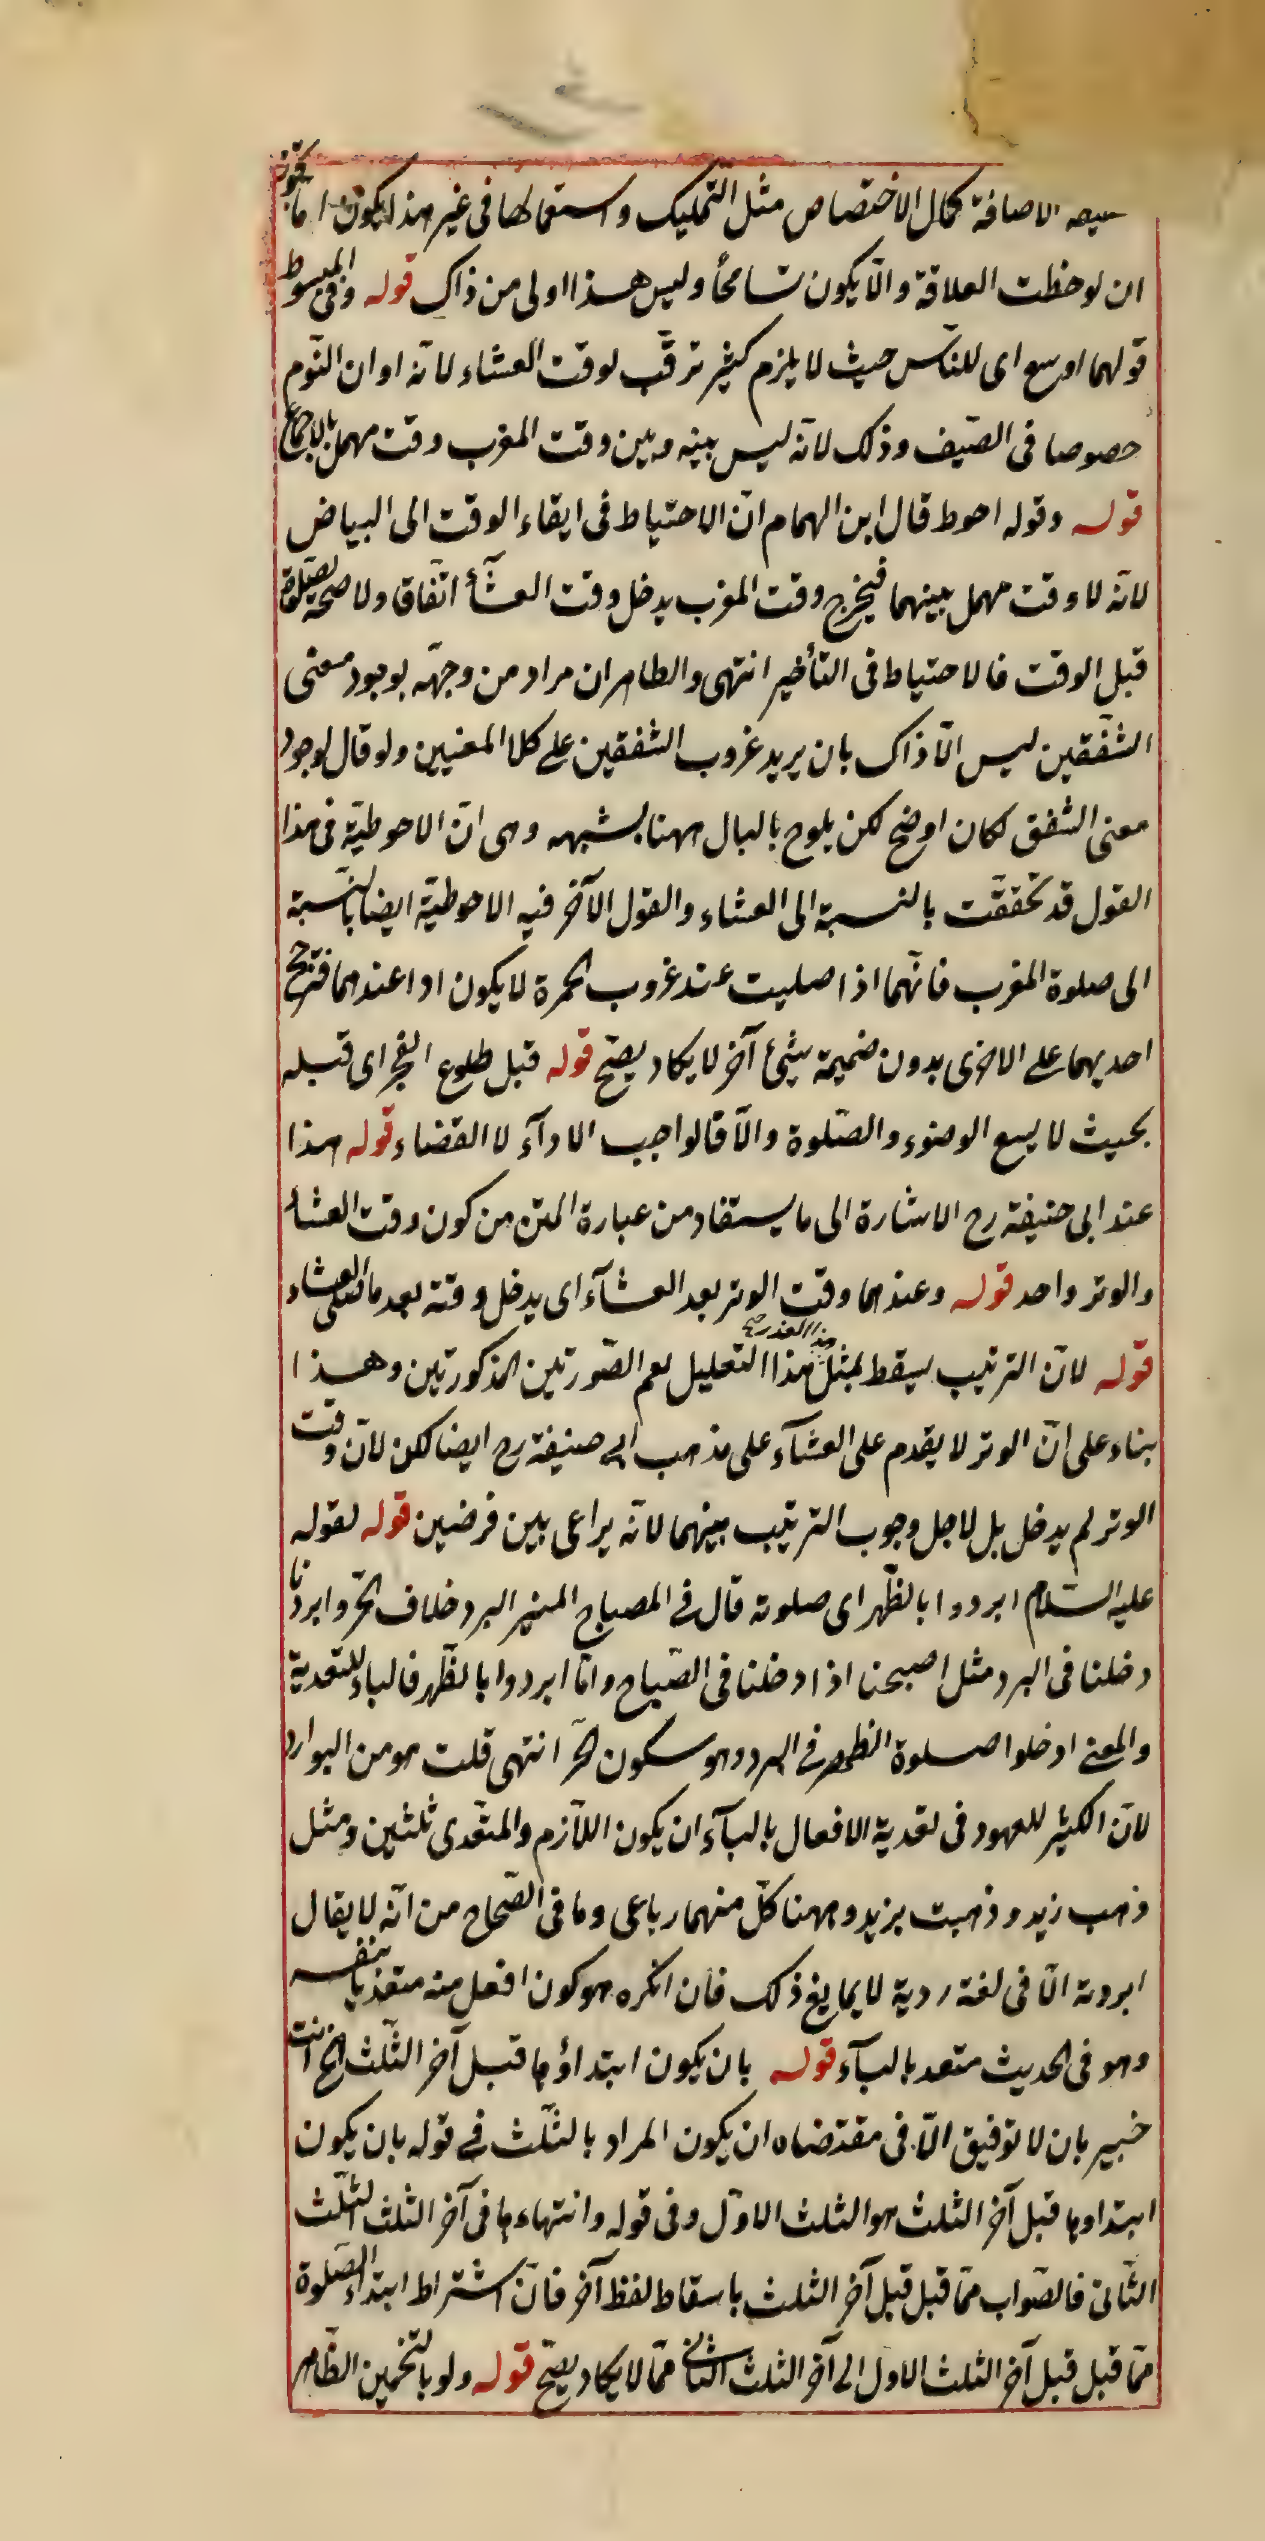 الاضافة كمال الاختصاص مثل التمليك واستعمالها فى غير هذا يكون اما
ان لوحظت العلاقة والّا يكون تسامحاً وليس هذا اولى من ذاك قوله وفى المبسوط
قولهما اوسع اى للنّاس حيث لا يلزم كثير ترقّب لوقت العشاء لانّه اوان النّوم
خصوصا فى الصّيف وذلك لانّه ليس بينه وبين وقت المغرب وقت مهمل بالاجماع
قوله وقوله احوط قال ابن الهمام انّ الاحتياط فى ابقاء الوقت الى البياض
لانّه لا وقت مهمل بينهما فبخرج وقت المغرب يدخل وقت العشأ اتّفاقا ولا صحّة لصّلوة
قبل الوقت فالاحتياط فى التأخير انتهى والظاهر ان مراد من وجهّه بوجود معنى
الشّفقين ليس الّا ذاك بان يريد غروب الشفقين على كلا المعنيين ولو قال لوجود
معنى الشفق لكان اوضح لكن يلوح بالبال ههنا شبهه وهى انّ الاحوطيّة فى هذا
القول قد تحققّت بالنسبة الى العشاء والقول الآخر فيه الاحوطيّة ايضا بالنّسبة
الى صلوة المغرب فانّهما اذا صليت عند غروب الحمرة لا يكون اداءا عندهما فترجّح
احديهما على الاخرى بدون ضميمة شيئ آخر لا يكاد يصحّ قوله قبل طلوع الفجر اى قبله
بحيث لا يسع الوضوء والصّلوة والّا فالواجب الادآء لا القضاء قوله هذا
عند ابى حنيفة رح الاشارة الى ما يستفاد من عبارة المتن من كون وقت العشأ
والوتر واحد قوله وعندهما وقت الوتر بعد العشآء اى يدخل وقته بعد ما صلى العشاء
قوله لانّ الترتيب يسقط بمثل هذا العذر صح هذا التعليل لعم الصّورتين المذكورتين وهذا
بناء على انّ الوتر لا يقدم على العشآء على مذهب ابى حنيفة رح ايضا لكن لا لانّ وقت
الوتر لم يدخل بل لاجل وجوب الترتيب بينهما لانّه يراعى بين فرضين قوله لقوله
عليه السّلام ابردوا بالظّهر اى صلوته قال فى المصباح المنير البرد خلاف الحرّ وابردنا
دخلنا فى البرد مثل اصبحنا اذا دخلنا فى الصّباح وامّا ابردوا بالظّهر فالباء للتعدية
والمعنى ادخلوا صلوة الظهر فى البرد وهو سكون الحرّ انتهى قلت هو من البوارد
لانّ الكثير المعهود فى تعدية الافعال بالبآء ان يكون اللّازم والمتعّدى ثلثين ومثل
ذهب زيد وذهبت بزيد وههنا كلّ منهما رباعى وما فى الصّحاح من انّه لا يقال
ابردته الّا فى لغة رديّة لا يمانع ذلك فان انكره هو كون افعل منه متعدّيا بنفسه
وهو فى الحديث متعد بالبآء قوله بان يكون ابتداؤها قبل آخر الثّلث الخ انت
خبير بان لا توفيق الّا فى مقتضاه ان يكون المراد بالثّلث فى قوله بان يكون
ابتداوها قبل آخر الثلث هو الثلث الاوّل وفى قوله وانتهاءها فى آخر الثلث الثّلث
الثّانى فالصّواب ممّا قبل قبل آخر الثلث باسقاط لفظ آخر فانّ اشتراط ابتداء الصّلوة
ممّا قبل قبل آخر الثلث الاول الى آخر الثلث الثّانى ممّا لا يكاد يصحّ قوله ولو بالتّخمين الظّاهر